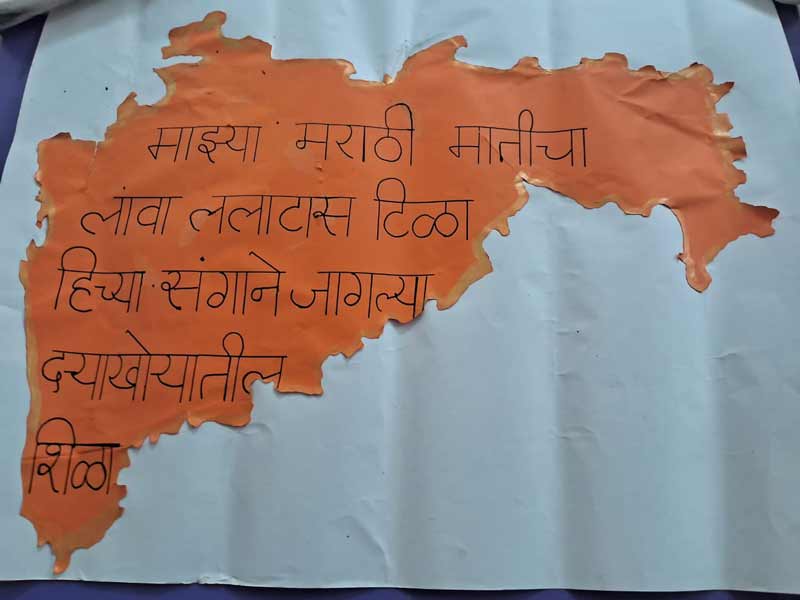 माझ्या मराठी मातीचा
लावा ललाटास टिळा
हिच्या संगाने जागल्या
दयाखोयातील
शिळा